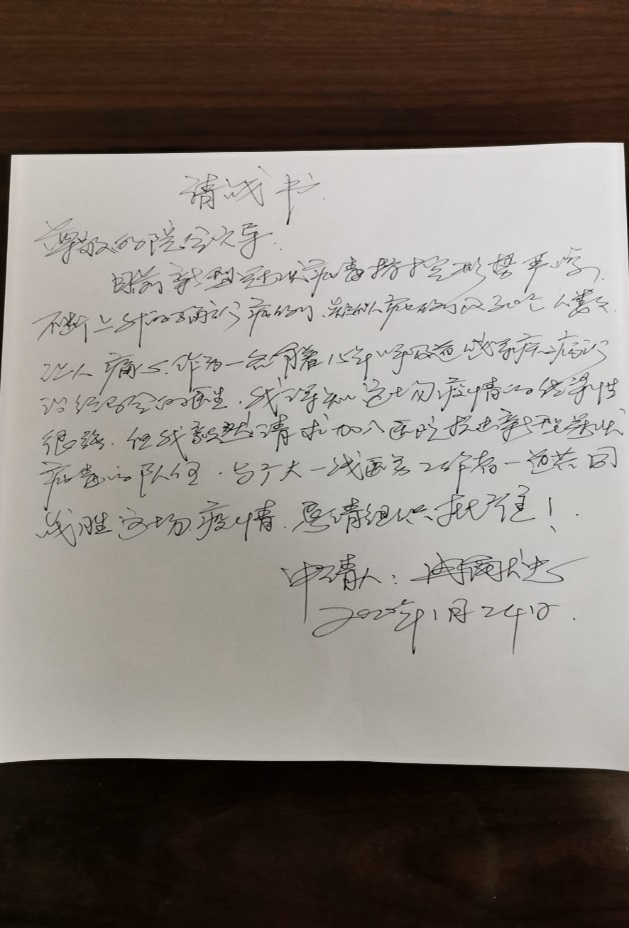 请战书
尊敬的院领导:
目前新型冠状病毒防控形势严峻,
不断上升的确诊病例、疑似病例及死亡人数
让人痛心.作为一名有着15年呼吸道感染疾病诊
治经验的医生,我深知这场疫情的传染性
很强.但我毅然请求加入医院抗击新型冠状
病毒的队伍,与广大一线医务工作者一道共同
战胜这场疫情.恳请组织批准!
申请人:
2020年1月24日.